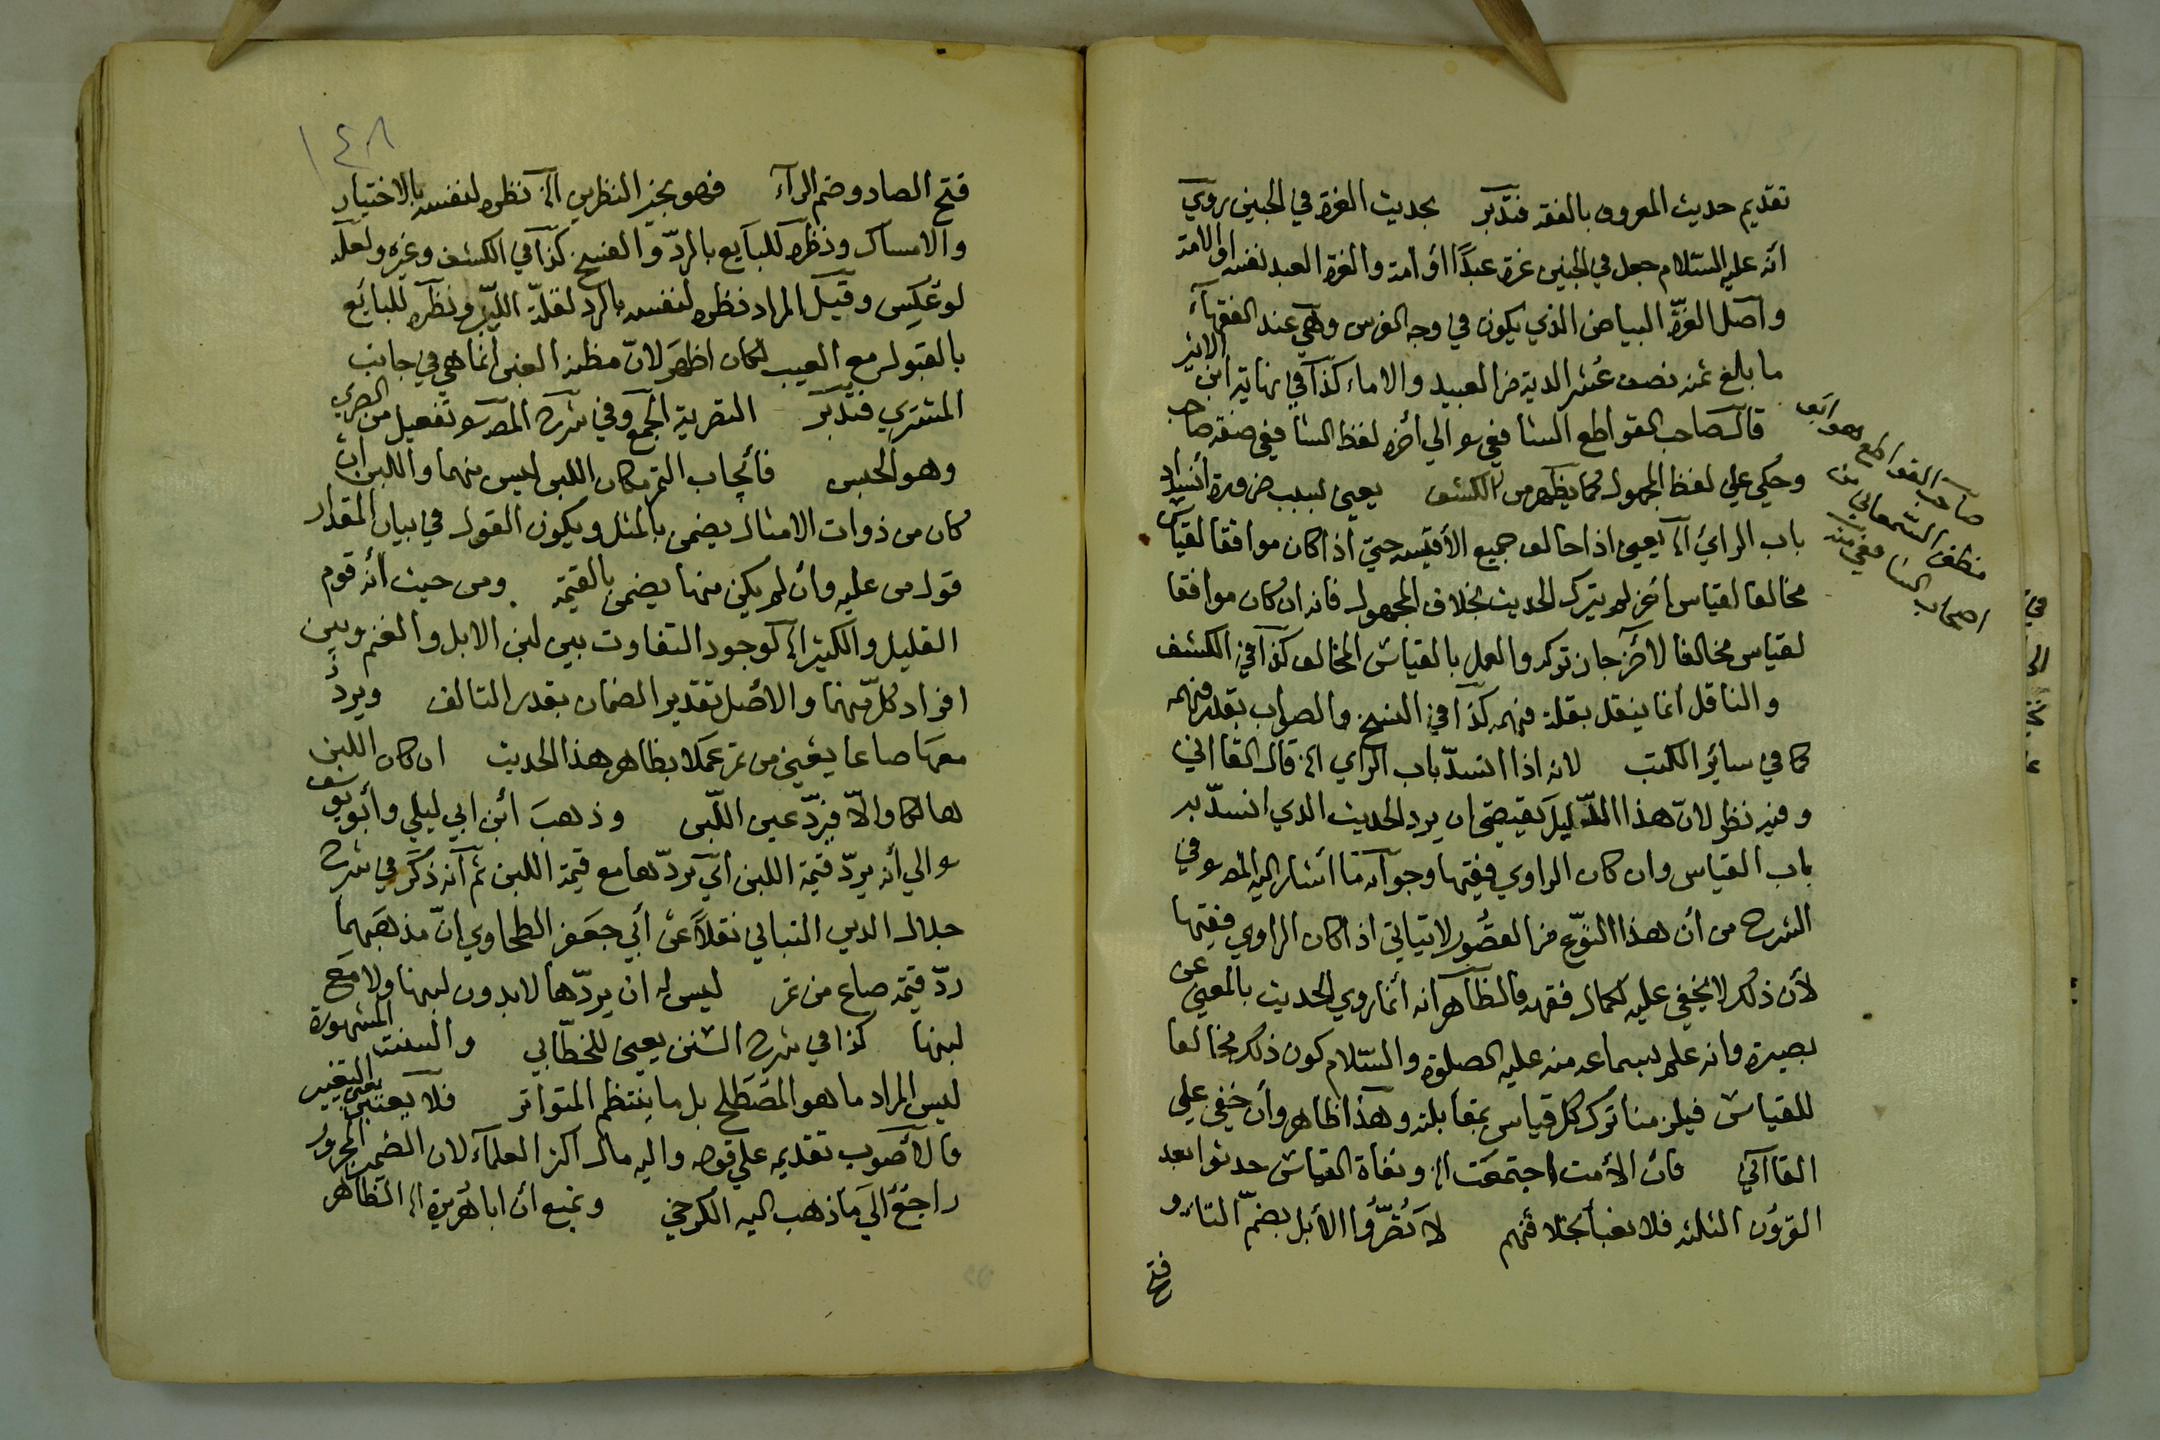 تقديم حديث المعروف بالفقه فتدبر بحديث الغرة في الجنين روي
أنه عليه السلام جعل في الجنين غرة عبدا أو أمة والغرة العبد نفسه او الامة
وأصل الغرة البياض الذي يكون في وجه الفرس وهي عند الفقهآء
ما بلغ ثمنه نصف عشر الدية من العبيد والاماء كذا في نهاية ابن الاثير
قال صاحب القواطع الشافعي والي أخره لفظ الشافعي صفة صاحب
وحكي علي لفظ المجهول كما يظهر من الكشف يعني لسبب ضرورة أنسداد
باب الرائ الخ يعني اذا خالف جميع الأقيسه حتي اذا كان موافقا لقياس
مخالفا لقياس أخر لم يترك الحديث بخلاف المجهول فانه ان كان موافقا
لقياس مخالفا لأخر جاز تركه والعمل بالقياس المخالف كذا في الكشف
والناقل انما ينقل بقلة فهمه كذا في النسخ والصواب بقدر فهمه
كما في سائر الكتب لانه اذا انسد باب الراي الخ قال القاآني
وفيه نظر لان هذا الدليل يقتضي ان يرد الحديث الذي انسد به
باب القياس وان كان الراوي فقيها وجوابه ما أشار اليه المص في
الشرح من أن هذا النوع من القصور لا يتاتي اذا كان الراوي فقيها
لأن ذلك لا يخفي عليه لكمال فقهه فالظاهر انه أنما روي الحديث بالمعني عن
بصيرة وانه علم بسماعه منه عليه الصلوة والسلام كون ذلك مخالفا
للقياس فيلزمنا ترك كل قياس بمقابلته وهذا ظاهر وأن خفي علي
القاآني فان الأمت اجتمعت الخ ونفاة القياس حدثوا بعد
القرون الثلثه فلا يعبأ بخلافهم لا تصروا الأبل بضم التاء و
فتح
صاحب القواطع هو ابو
مظفر السمعاني من
اصحاب الشافعي منه
١٤٨
فتح الصاد وضم الرآء فهو بخير النظرين الخ نظره لنفسه بالاختيار
والامساك ونظره للبايع بالرد والفسخ كذا في الكشف وغيره ولعله
لو عكس وقيل المراد نظره لنفسه بالرد لقلة اللبن ونظره للبائع
بالقبول مع العيب لكان اظهر لان مظنة الغبن انما هي في جانب
المشتري فتدبر التصرية الجمع وفي شرح المص تفعيل من الصري
وهو الحبس فأيجاب التمر مكان اللبن ليس منهما واللبن ان
كان من ذوات الامثال يضمن بالمثل ويكون القول في بيان المقدار
قول من عليه وأن لم يكن منها يضمن بالقيمة ومن حيث أنه قوم
القليل والكثير الخ كوجود التفاوت بين لبن الابل والغنم وبين
افراد كل منهما والاصل تقدير الضمان بقدر التالف ويرد
معها صاعا يعني من تمر عملا بظاهر هذا الحديث ان كان اللبن
هالكا والا فيرد عين اللبن وذهب أبن ابي ليلي وأبو يوسف
والي أنه يرد قيمة اللبن أي يردها مع قيمة اللبن ثم أنه ذكر في شرح
جلال الدين التباني نقلا عن أبي جعفر الطحاوي ان مذهبهما
رد قيمة صاع من تمر ليس له ان يردها لا بدون لبنها ولا مع
لبنها كذا في شرح السنن يعني للخطابي والسنت المشهورة
ليس المراد ما هو المصطلح بل ما ينتظم المتواتر فلا يعتبر
فالأصوب تقديمه علي قوله واليه مال اكثر العلماء لان الضمير المجرور
راجع الي ما ذهب اليه الكرخي ونمنع أن ابا هريرة الخ الظاهر